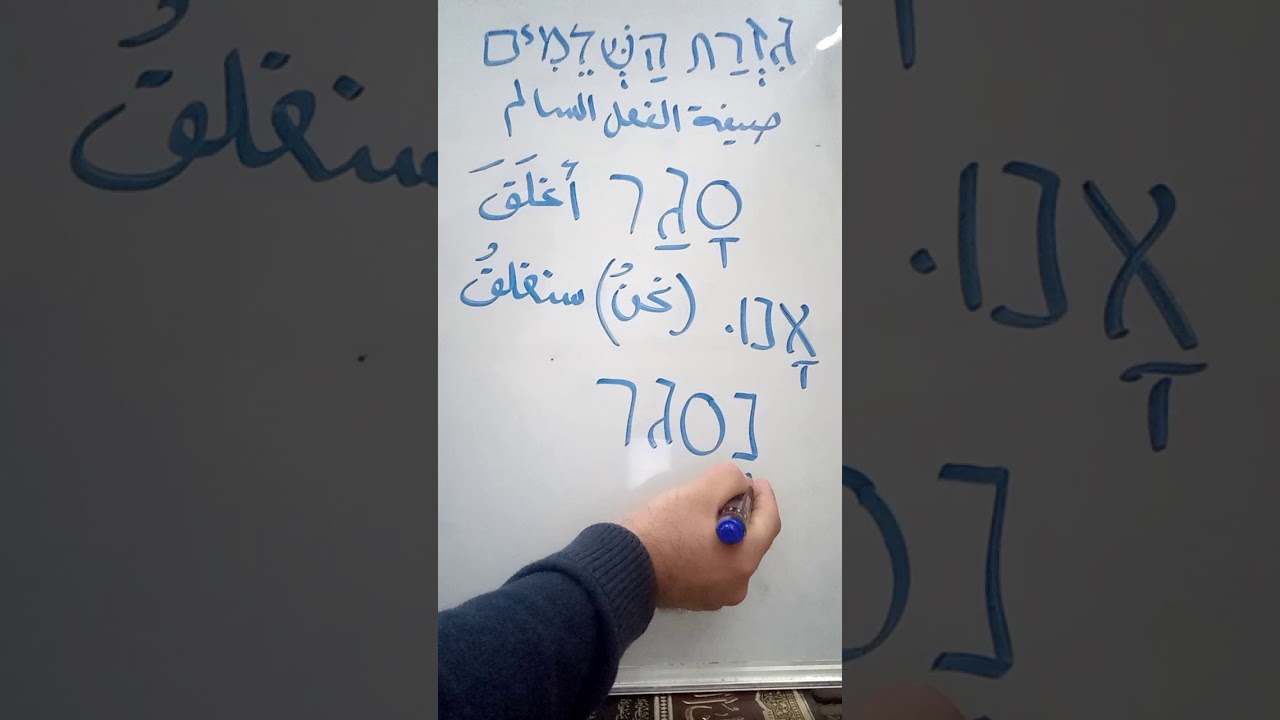 גִזְרַת הַשְּׁלֵמִים
صيغة الفعل السالم
סָגַר أَغلَقَ
אָנוּ (نحنُ) سنغلقُ
נִסגר